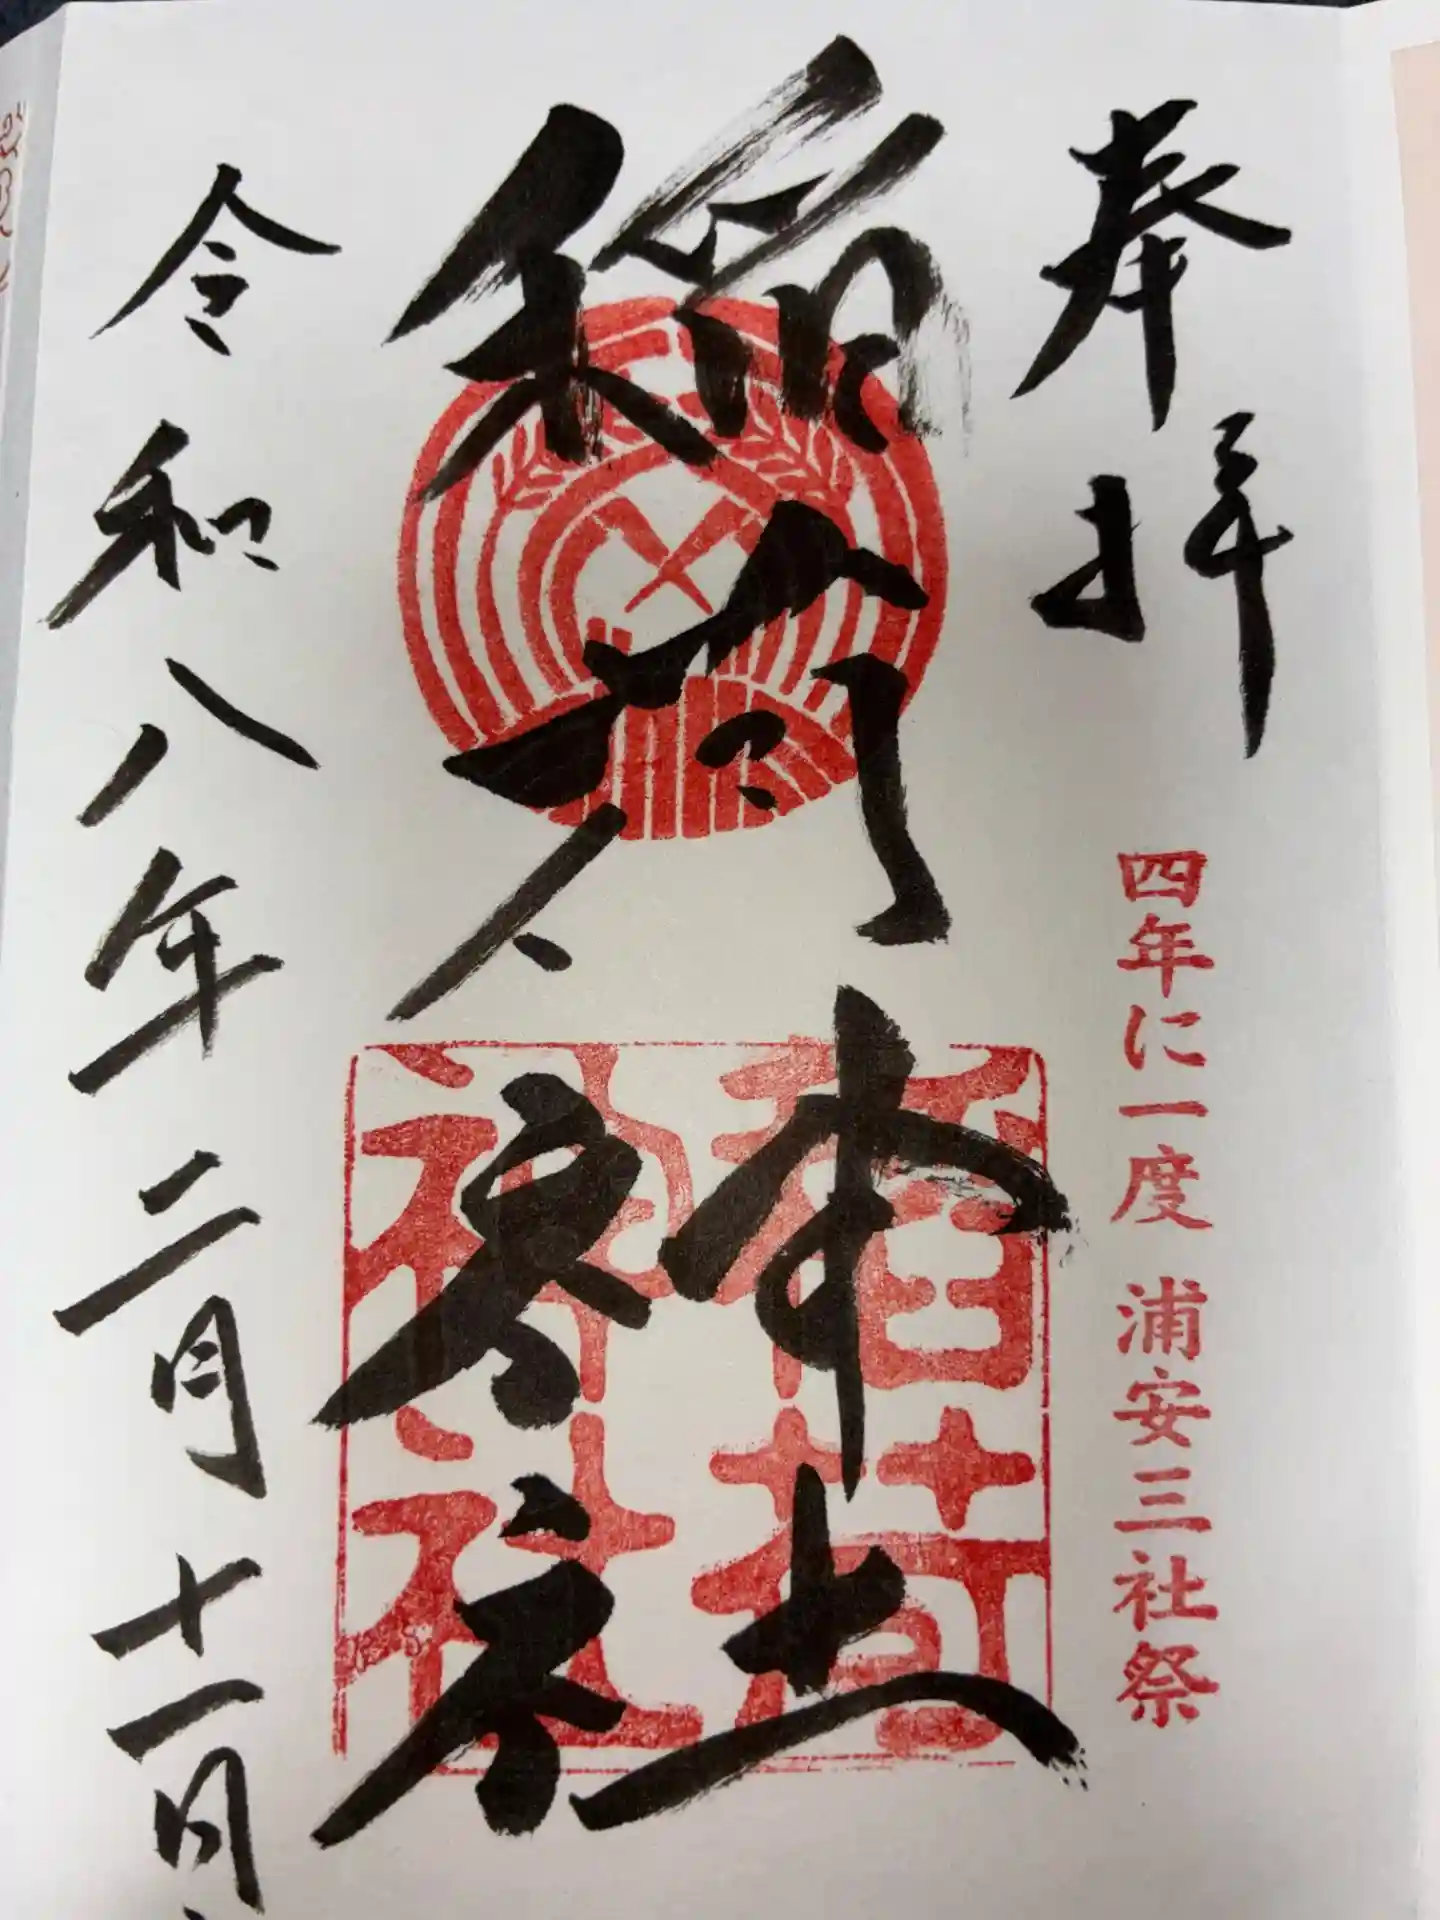 奉拝
四年に一度 浦安三社祭
稲荷神社
稲荷神社
令和八年二月十一日